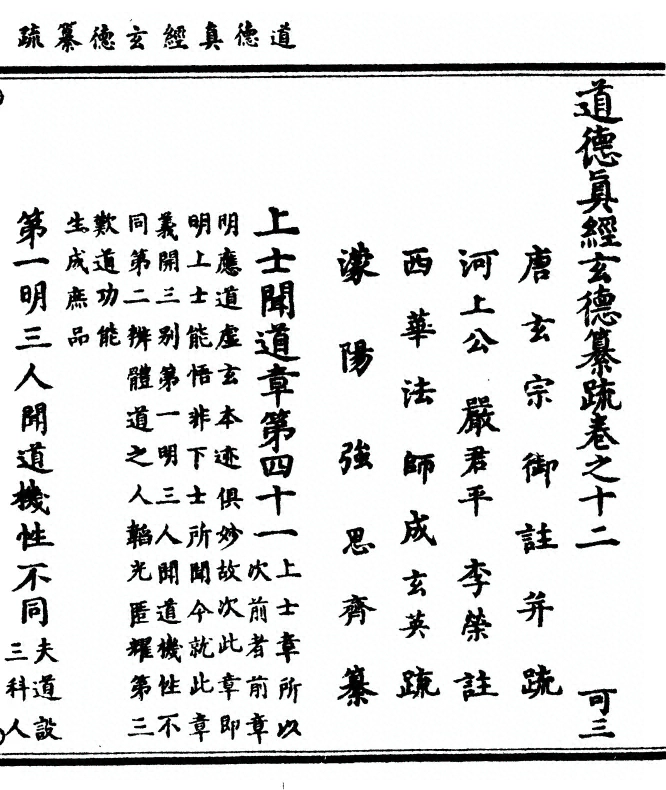 道德真經玄德纂疏
道德眞經玄德纂疏卷之十二 可三
唐玄宗御註并疏
河上公 嚴君平 李榮註
西華法師成玄英疏
濛陽強思齊纂
上士聞道章第四十一
上士章所以
次前者前章
明應道虛玄本迹俱妙故次此章即
明上士能悟非下士所聞今就此章
義開三別第一明三人聞道機性不
同第二辨體道之人韜光匿耀第三
歎道功能
生成庶品
第一明三人聞道機性不同
夫道設
三科人